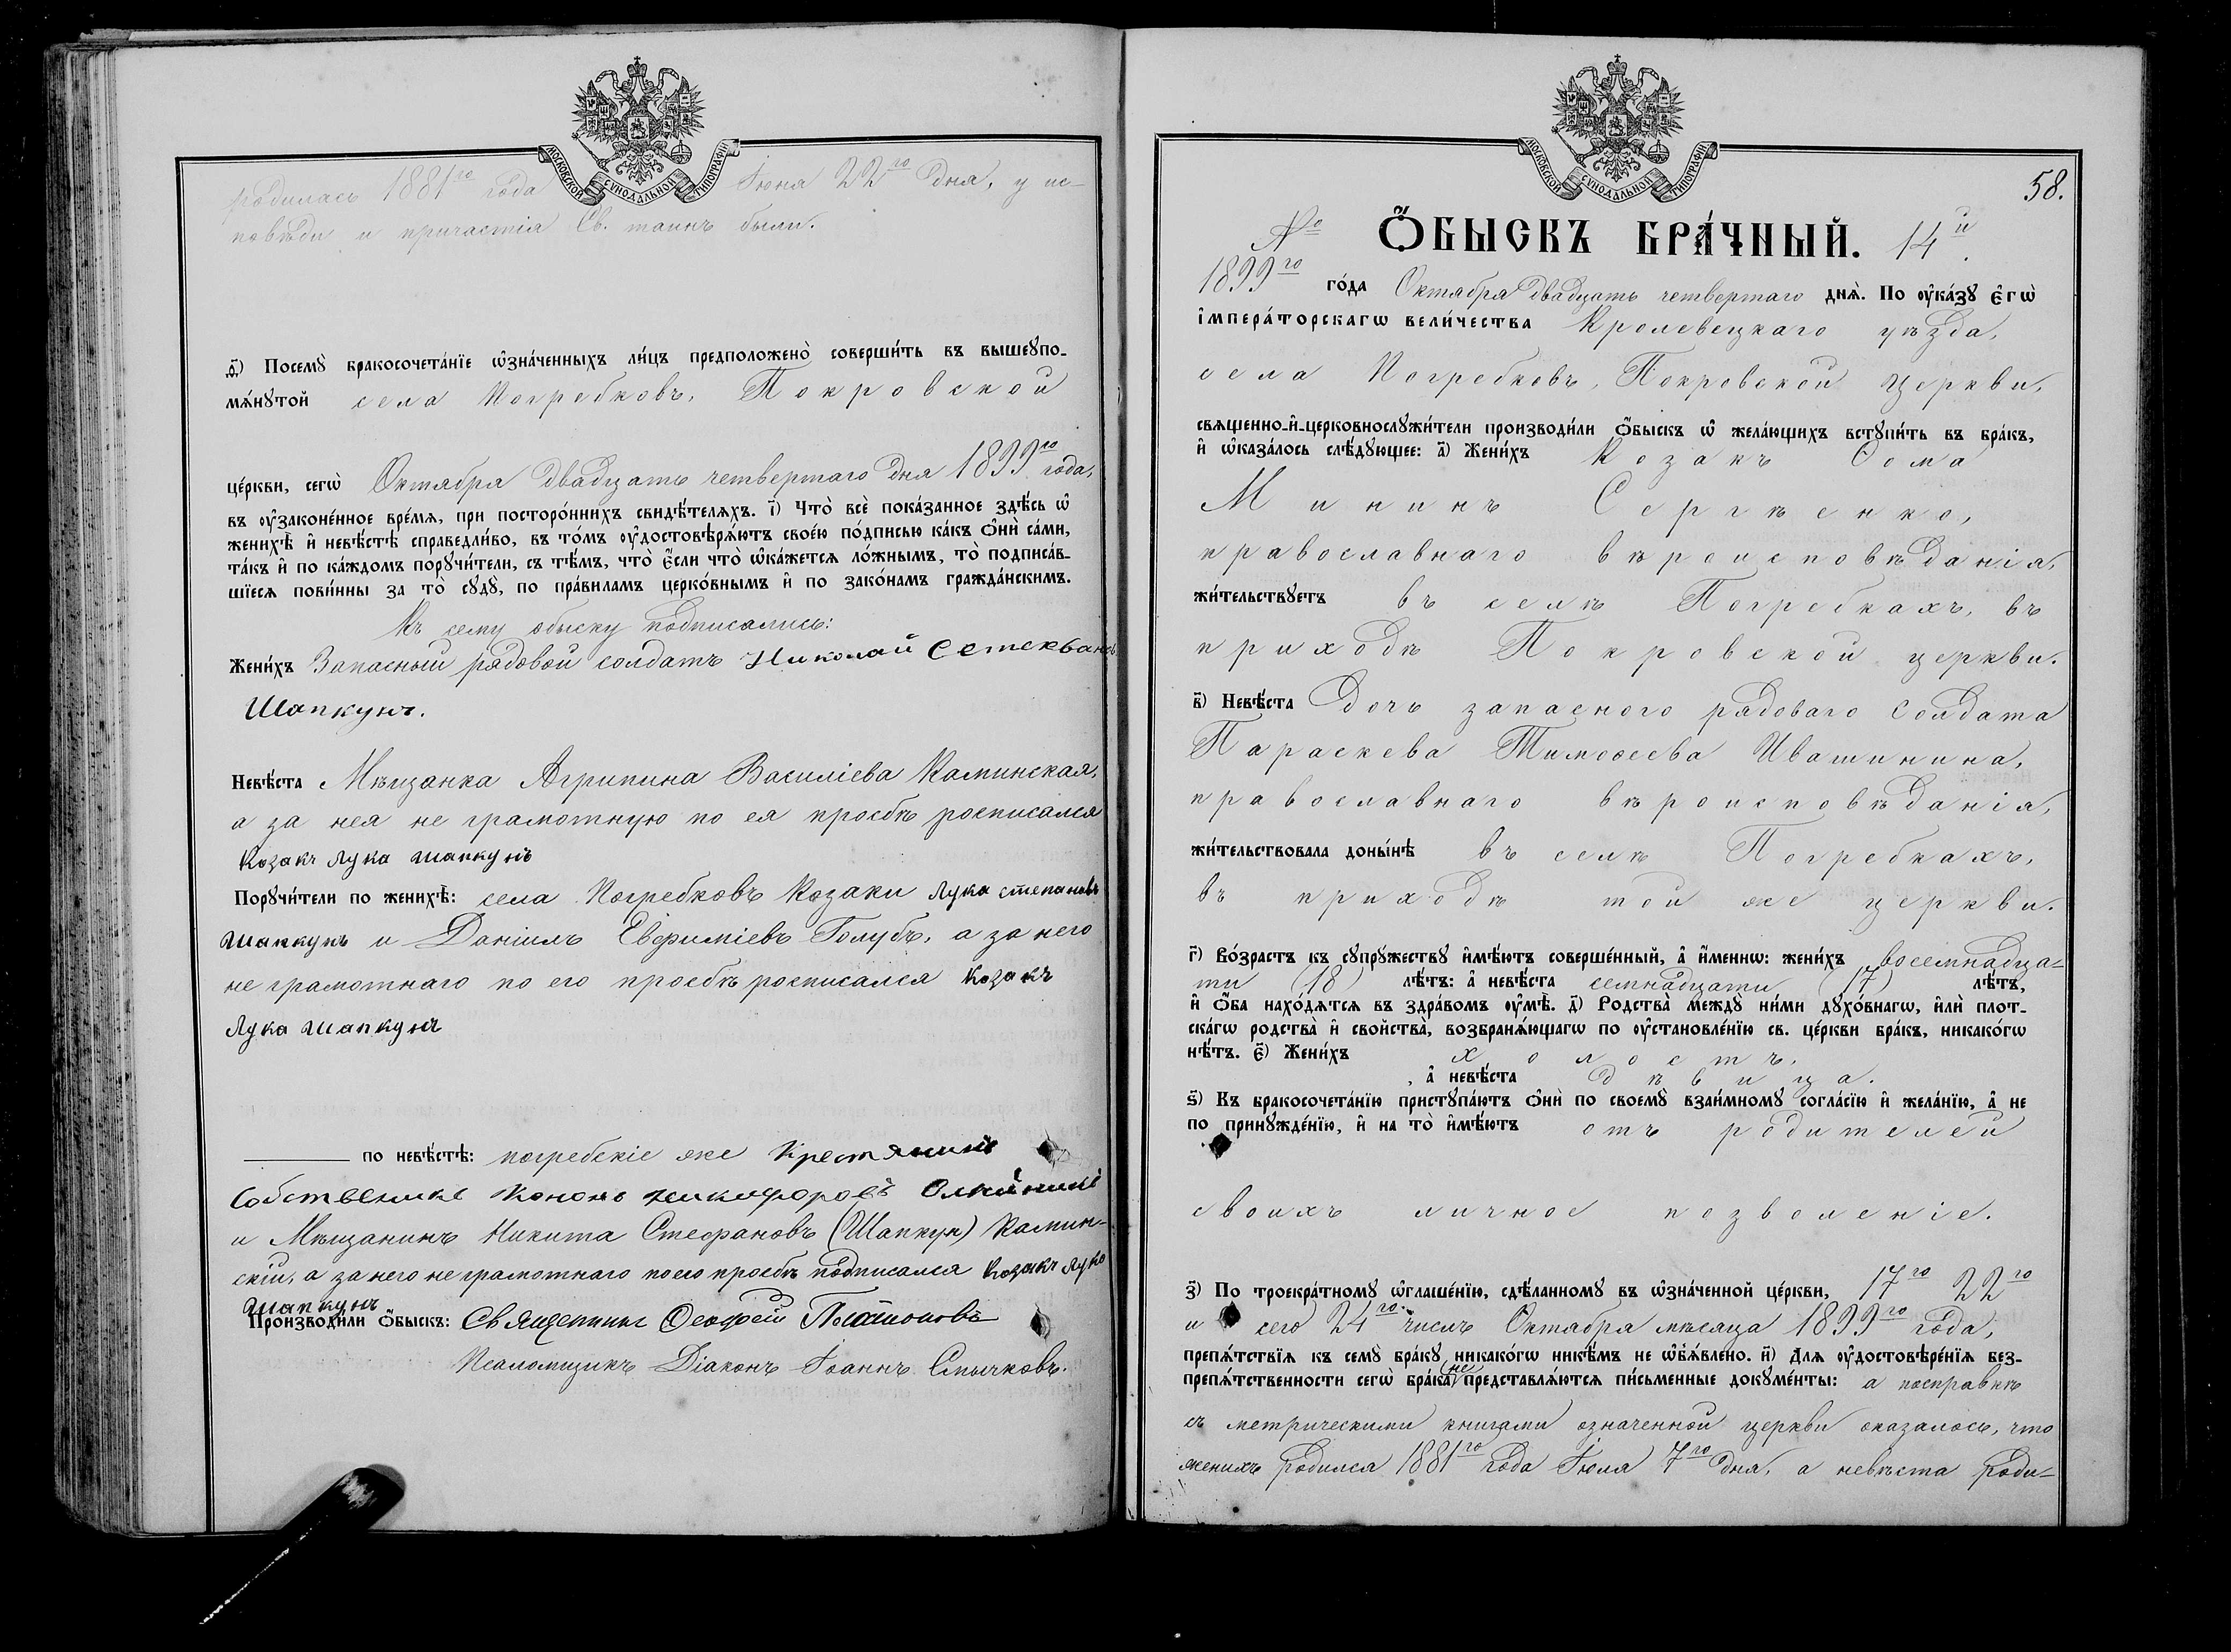 МОСКОВСКОЙ СѴНОДАЛЬНОЙ ТИПОГРАФІИ
родилась 1881го года Іюня 22го дня, у ис-
повѣди и причастія Св. таинъ были.
ѳ҃) Посемꙋ̀ бракосочета́нїе ѡ҆зна́ченныхъ ли́цъ предположено̀ соверши́ть въ вышеꙋпо-
мѧ́нꙋтой села Погребковъ, Покровской
це́ркви, сегѡ̀ Октября двадцать четвертаго дня 1899го года,
въ ᲂу҆законе́нное вре́мѧ, при посторо́ннихъ свидѣ́телѧхъ. і҃) Что̀ всѐ пока́занное здѣ́сь ѡ҆
женихѣ̀ и҆ невѣ́стѣ справедли́во, въ то́мъ ᲂу҆достовѣрѧ́ютъ свое́ю по́дписью ка́къ ѻ҆нѝ са́ми,
та́къ и҆ по ка́ждомъ порꙋчи́тели, съ тѣ́мъ, что̀ є҆́сли что̀ ѡ҆ка́жется ло́жнымъ, то̀ подписа́в-
шїесѧ пови́нны за то̀ сꙋдꙋ̀, по пра́виламъ церко́внымъ и҆ по зако́намъ гражда́нскимъ.
Къ сему обыску подписались:
Жени́хъ Запасный рядовой солдатъ Николай
Шапкунъ.
Невѣ́ста Мѣщанка Агрипина Василіева Каминская,
а за нея не грамотную по ея просьбѣ росписался
козакъ Лука шапкунъ
Порꙋчи́тели по женихѣ̀: села Погребковъ Козаки лука степановъ
шапкунъ и Даніилъ Евфиміевъ Голубъ, а за него
не грамотнаго по его просьбѣ росписался козакъ
лука шапкунъ
по невѣ́стѣ: погребскіе же крестянинъ
собственикъ Кононъ никифоровъ
и Мѣщанинъ Никита Стефановъ (Шапкун) Камин-
скій, а за него не грамотнаго по его просьбѣ подписался козакъ лука
шапкунъ
Производи́ли ѻ҆́быскъ: Священникъ
Псаломщикъ Діаконъ Іоаннъ Смычковъ.
МОСКОВСКОЙ СѴНОДАЛЬНОЙ ТИПОГРАФІИ
58.
№ Ѻ҆́БЫСКЪ БРА́ЧНЫЙ. 14й.
1899го го́да Октября двадцать четвертаго днѧ̀. По ᲂу҆ка́зꙋ є҆гѡ̀
і҆мпера́торскагѡ вели́чества Кролевецкаго уѣзда,
села Погребковъ, Покровской церкви,
свѧщенно-и҆-церковнослꙋжи́тели производи́ли ѻ҆́быскъ ѡ҆ жела́ющихъ встꙋпи́ть въ бра́къ,
и҆ ѡ҆каза́лось слѣ́дꙋющее: а҃) Жени́хъ Козакъ Ѳома
Мининъ Сергѣенко,
православнаго вѣроисповѣданія,
жи́тельствꙋетъ въ селѣ Погребкахъ, въ
приходѣ Покровской церкви.
в҃) Невѣ́ста Дочь запасного рядоваго солдата
Параскева Тимоѳеева Ивашинина,
православнаго вѣроисповѣданія,
жи́тельствовала доны́нѣ въ селѣ Погребкахъ,
въ приходѣ той же церкви.
г҃) Во́зрастъ къ сꙋпрꙋ́жествꙋ и҆мѣ́ютъ соверше́нный, а҆ и҆́меннѡ: жени́хъ восемнадца-
ти (18) лѣ́тъ: а҆ невѣ́ста семнадцати (17) лѣ́тъ,
и҆ ѻ҆́ба нахо́дѧтсѧ въ здра́вомъ ᲂу҆мѣ̀. д҃) Родства̀ междꙋ̀ ни́ми дꙋхо́внагѡ, и҆лѝ плот-
ска́гѡ родства̀ и҆ свойства̀, возбранѧ́ющагѡ по ᲂу҆становле́нїю св. це́ркви бра́къ, никако́гѡ
нѣ́тъ. є҃) Жени́хъ холостъ,
, а҆ невѣ́ста дѣвица.
ѕ҃) Къ бракосочета́нїю пристꙋпа́ютъ ѻ҆нѝ по своемꙋ̀ взаи́мномꙋ согла́сїю и҆ жела́нїю, а҆ не
по принꙋжде́нїю, и҆ на то̀ и҆мѣ́ютъ отъ родителей
своихъ личное позволеніе.
з҃) По троекра́тномꙋ ѡ҆глаше́нїю, сдѣ́ланномꙋ въ ѡ҆зна́ченной це́ркви, 17го 22го
и сего 24го числъ Октября мѣсяца 1899го года,
препѧ́тствїѧ къ семꙋ̀ бра́кꙋ никако́гѡ никѣ́мъ не ѡ҆б̾ѧ́влено. и҃) Длѧ ᲂу҆достовѣре́нїѧ без-
препѧ́тственности сегѡ̀ бра́ка (не) представлѧ́ютсѧ пи́сьменные докꙋме́нты: а посправкѣ
съ метрическими книгами означенной церкви оказалось, что
женихъ родился 1881го года Іюля 7го дня, а невѣста роди-